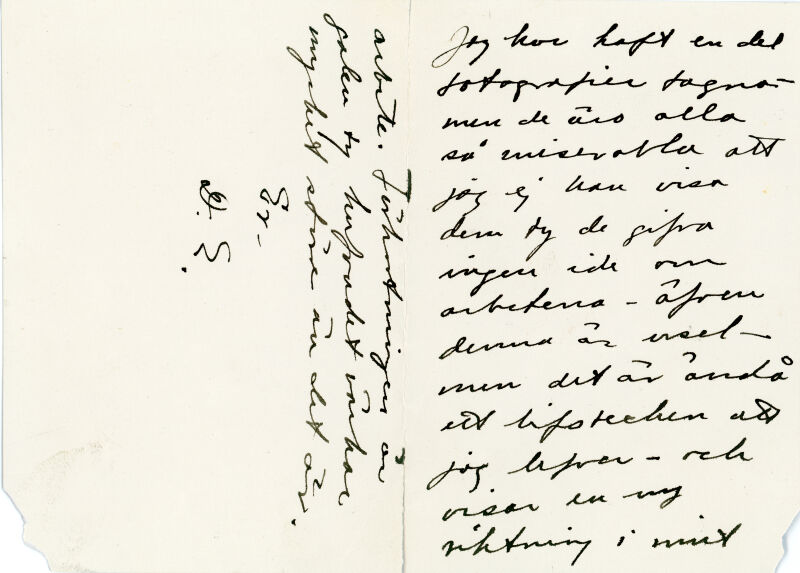 Jag har haft en del
fotografier tagna –
men de äro alla
så miserabla att
jag ej kan visa
dem ty de gifva
ingen idé om
arbetena – äfven
denna är usel –
men det är ändå
ett lifstecken att
jag lefver – och
visar en ny
riktning i mitt
arbete. Förkortningen är
galen ty hufvudet värkar
mycket större än det är.
Er –
D. E.